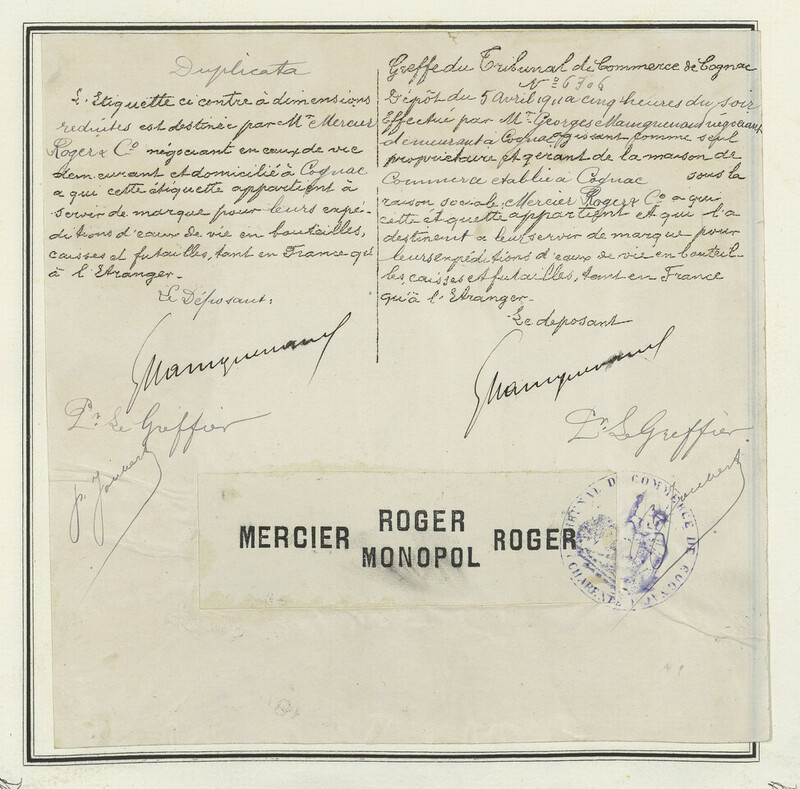 Duplicata
L'Etiquette ci contre à dimensions
reduites est destinée par Mr Mercier
Roger & Co négociant en eaux de vie
demeurant et domicilié à Cognac
a qui cette étiquette appartient à
servir de marque pour leurs expé-
ditions d'eaux de vie en bouteilles,
caisses et futailles, tant en France qu'
à l'Etranger.
Le Déposant:
Pr Le Greffier
p. Joubert
Greffe du Tribunal de Commerce de Cognac
No 6706
Dépôt du 5 Avril à cinq heures du soir
Effectué par Mr Georges négociant
demeurant à Cognac agissant comme seul
propriétaire et gerant de la maison de
Commerce etablie à Cognac sous la
raison sociale Mercier Roger & Co a qui
cette etiquette appartient et qui l'a
destinent a leur servir de marque pour
leurs expéditions d'eaux de vie en bouteil-
les, caisses et futailles, tant en France
qu'à l'Etranger-
Le deposant
Pr Le Greffier
MERCIER ROGER MONOPOL ROGER
TRIBUNAL DE COMMERCE DE COGNAC
CHARENTE